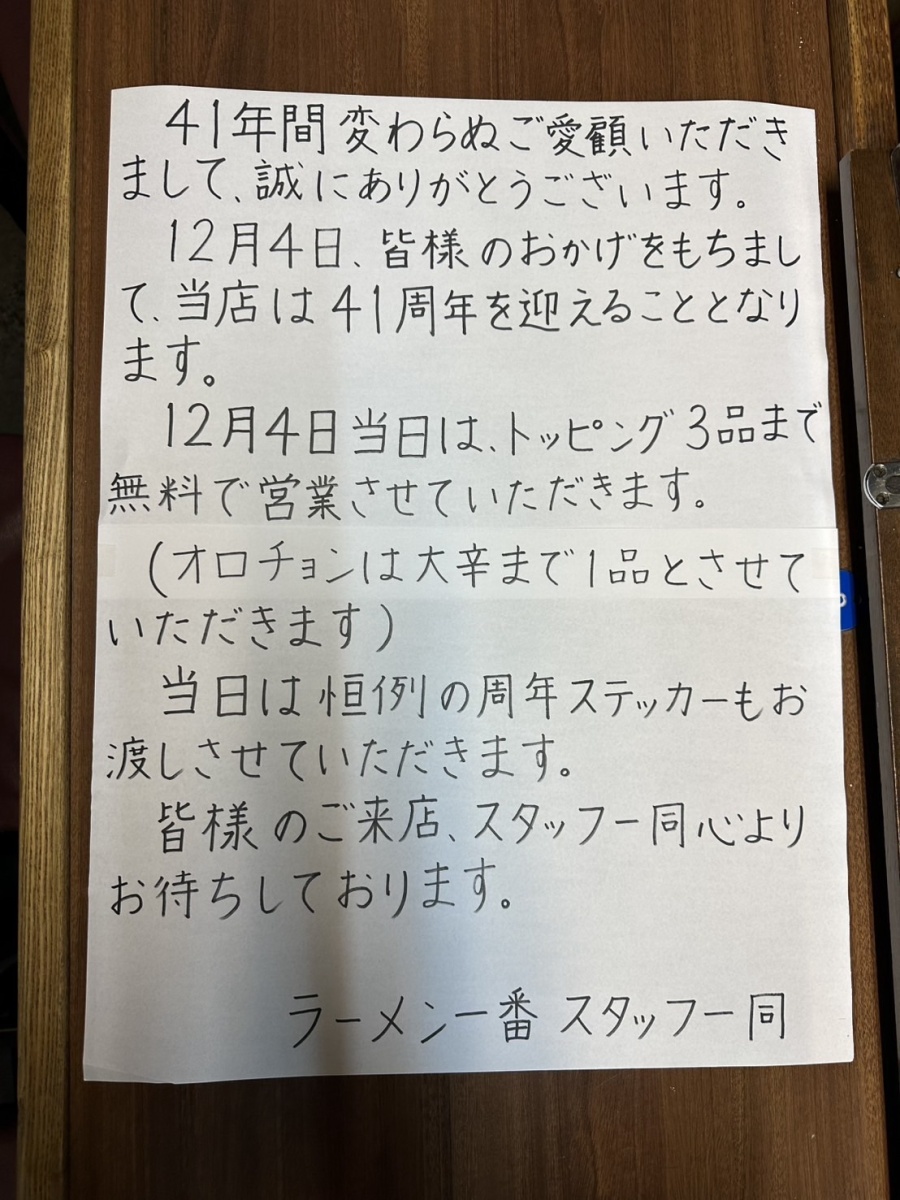 41年間変わらぬご愛顧いただき
まして、誠にありがとうございます。
12月4日、皆様のおかげをもちまし
て、当店は41周年を迎えることとなり
ます。
12月4日当日は、トッピング3品まで
無料で営業させていただきます。
(オロチョンは大辛まで1品とさせて
いただきます)
当日は恒例の周年ステッカーもお
渡しさせていただきます。
皆様のご来店、スタッフ一同心より
お待ちしております。
ラーメン一番 スタッフ一同